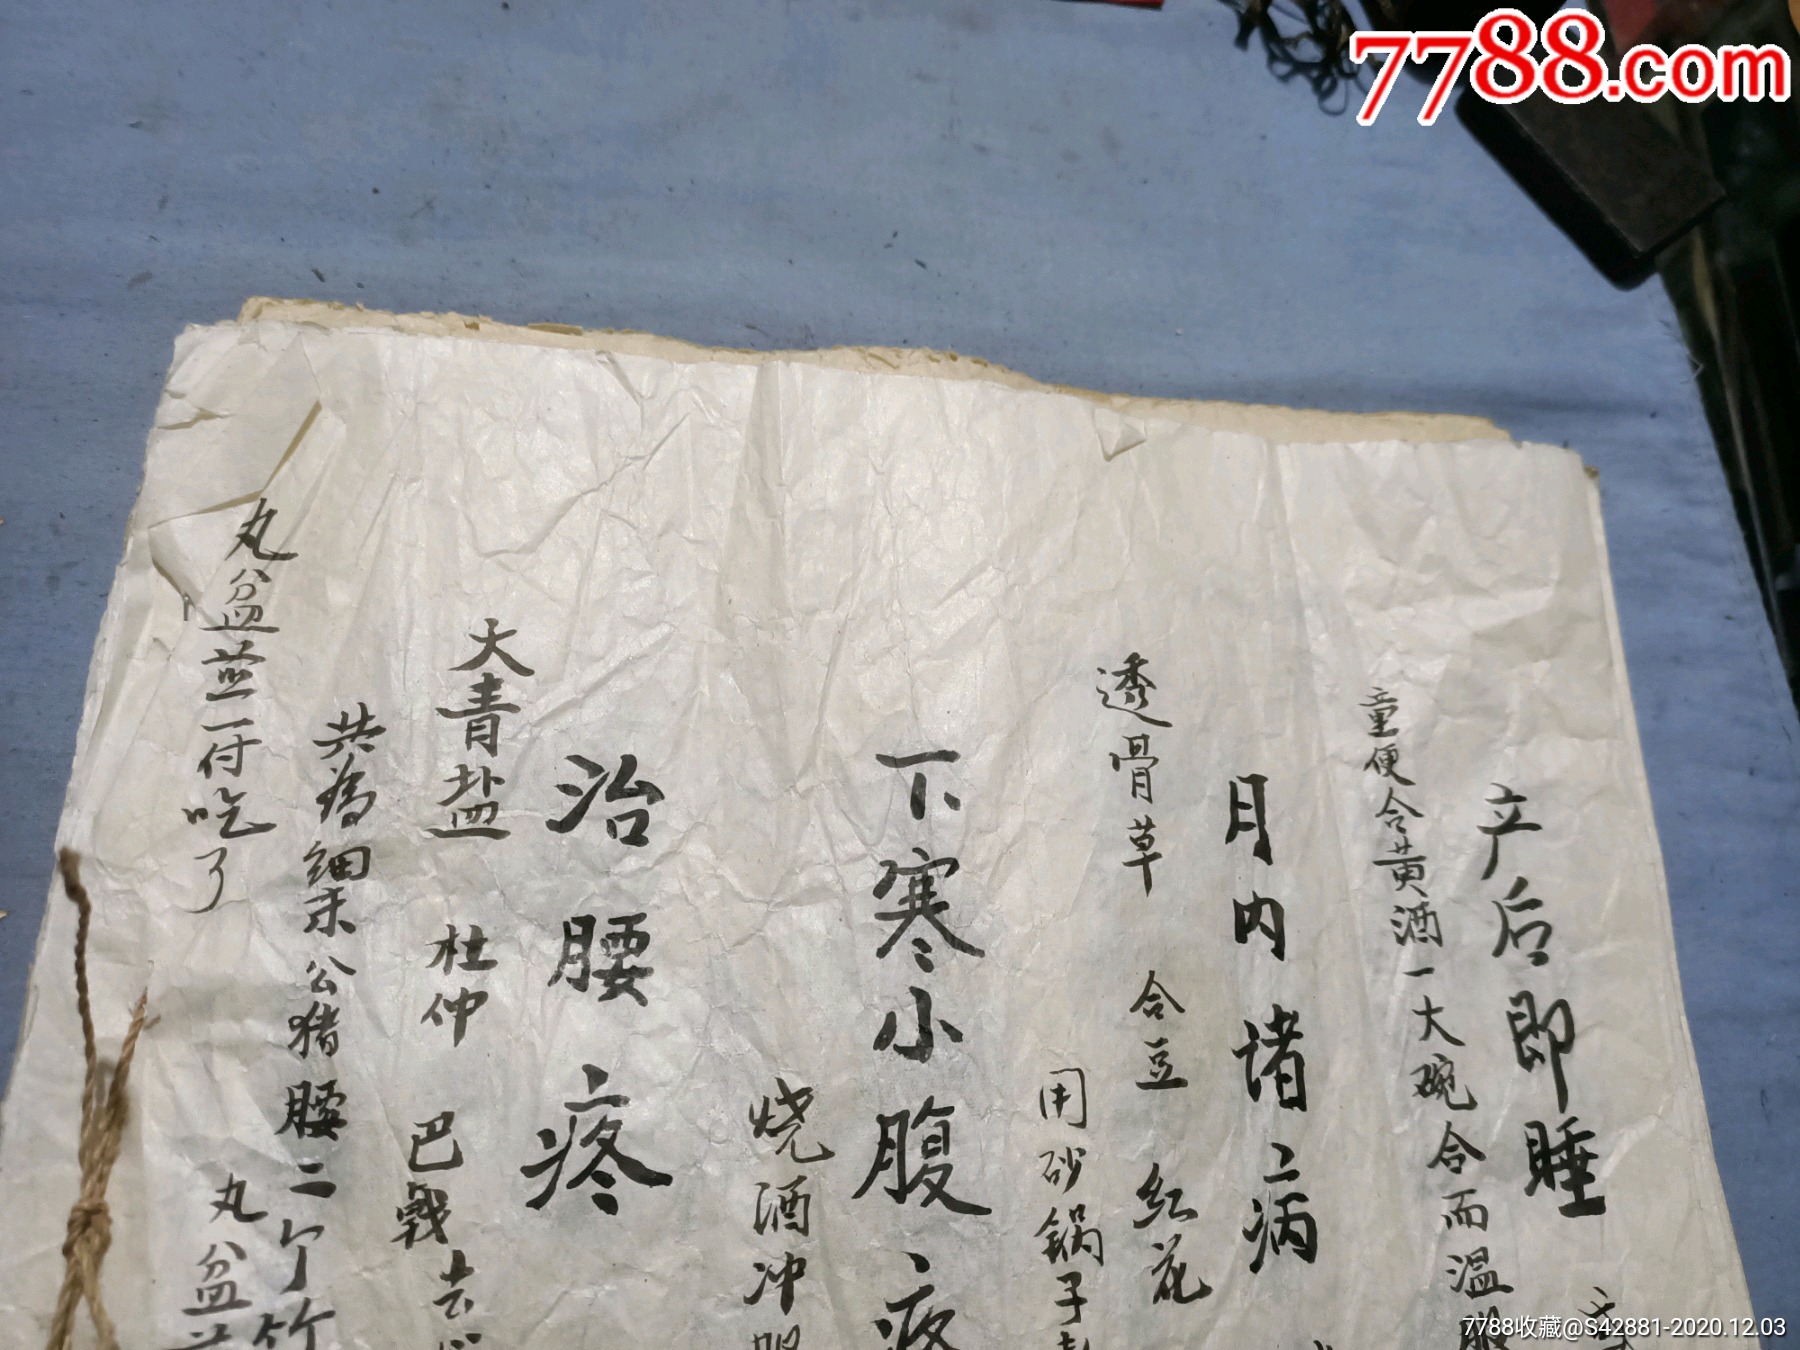 7788.com
产后即睡
童便合黄酒一大碗合而温服
月内诸病
透骨草 合豆 红花
用砂锅子
下寒小腹疼
烧酒冲服
治腰疼
大青盐 杜仲 巴戟去心
共为细末公猪腰二个竹
丸盆蒸一付吃了
丸盆
7788收藏@S42881-2020.12.03